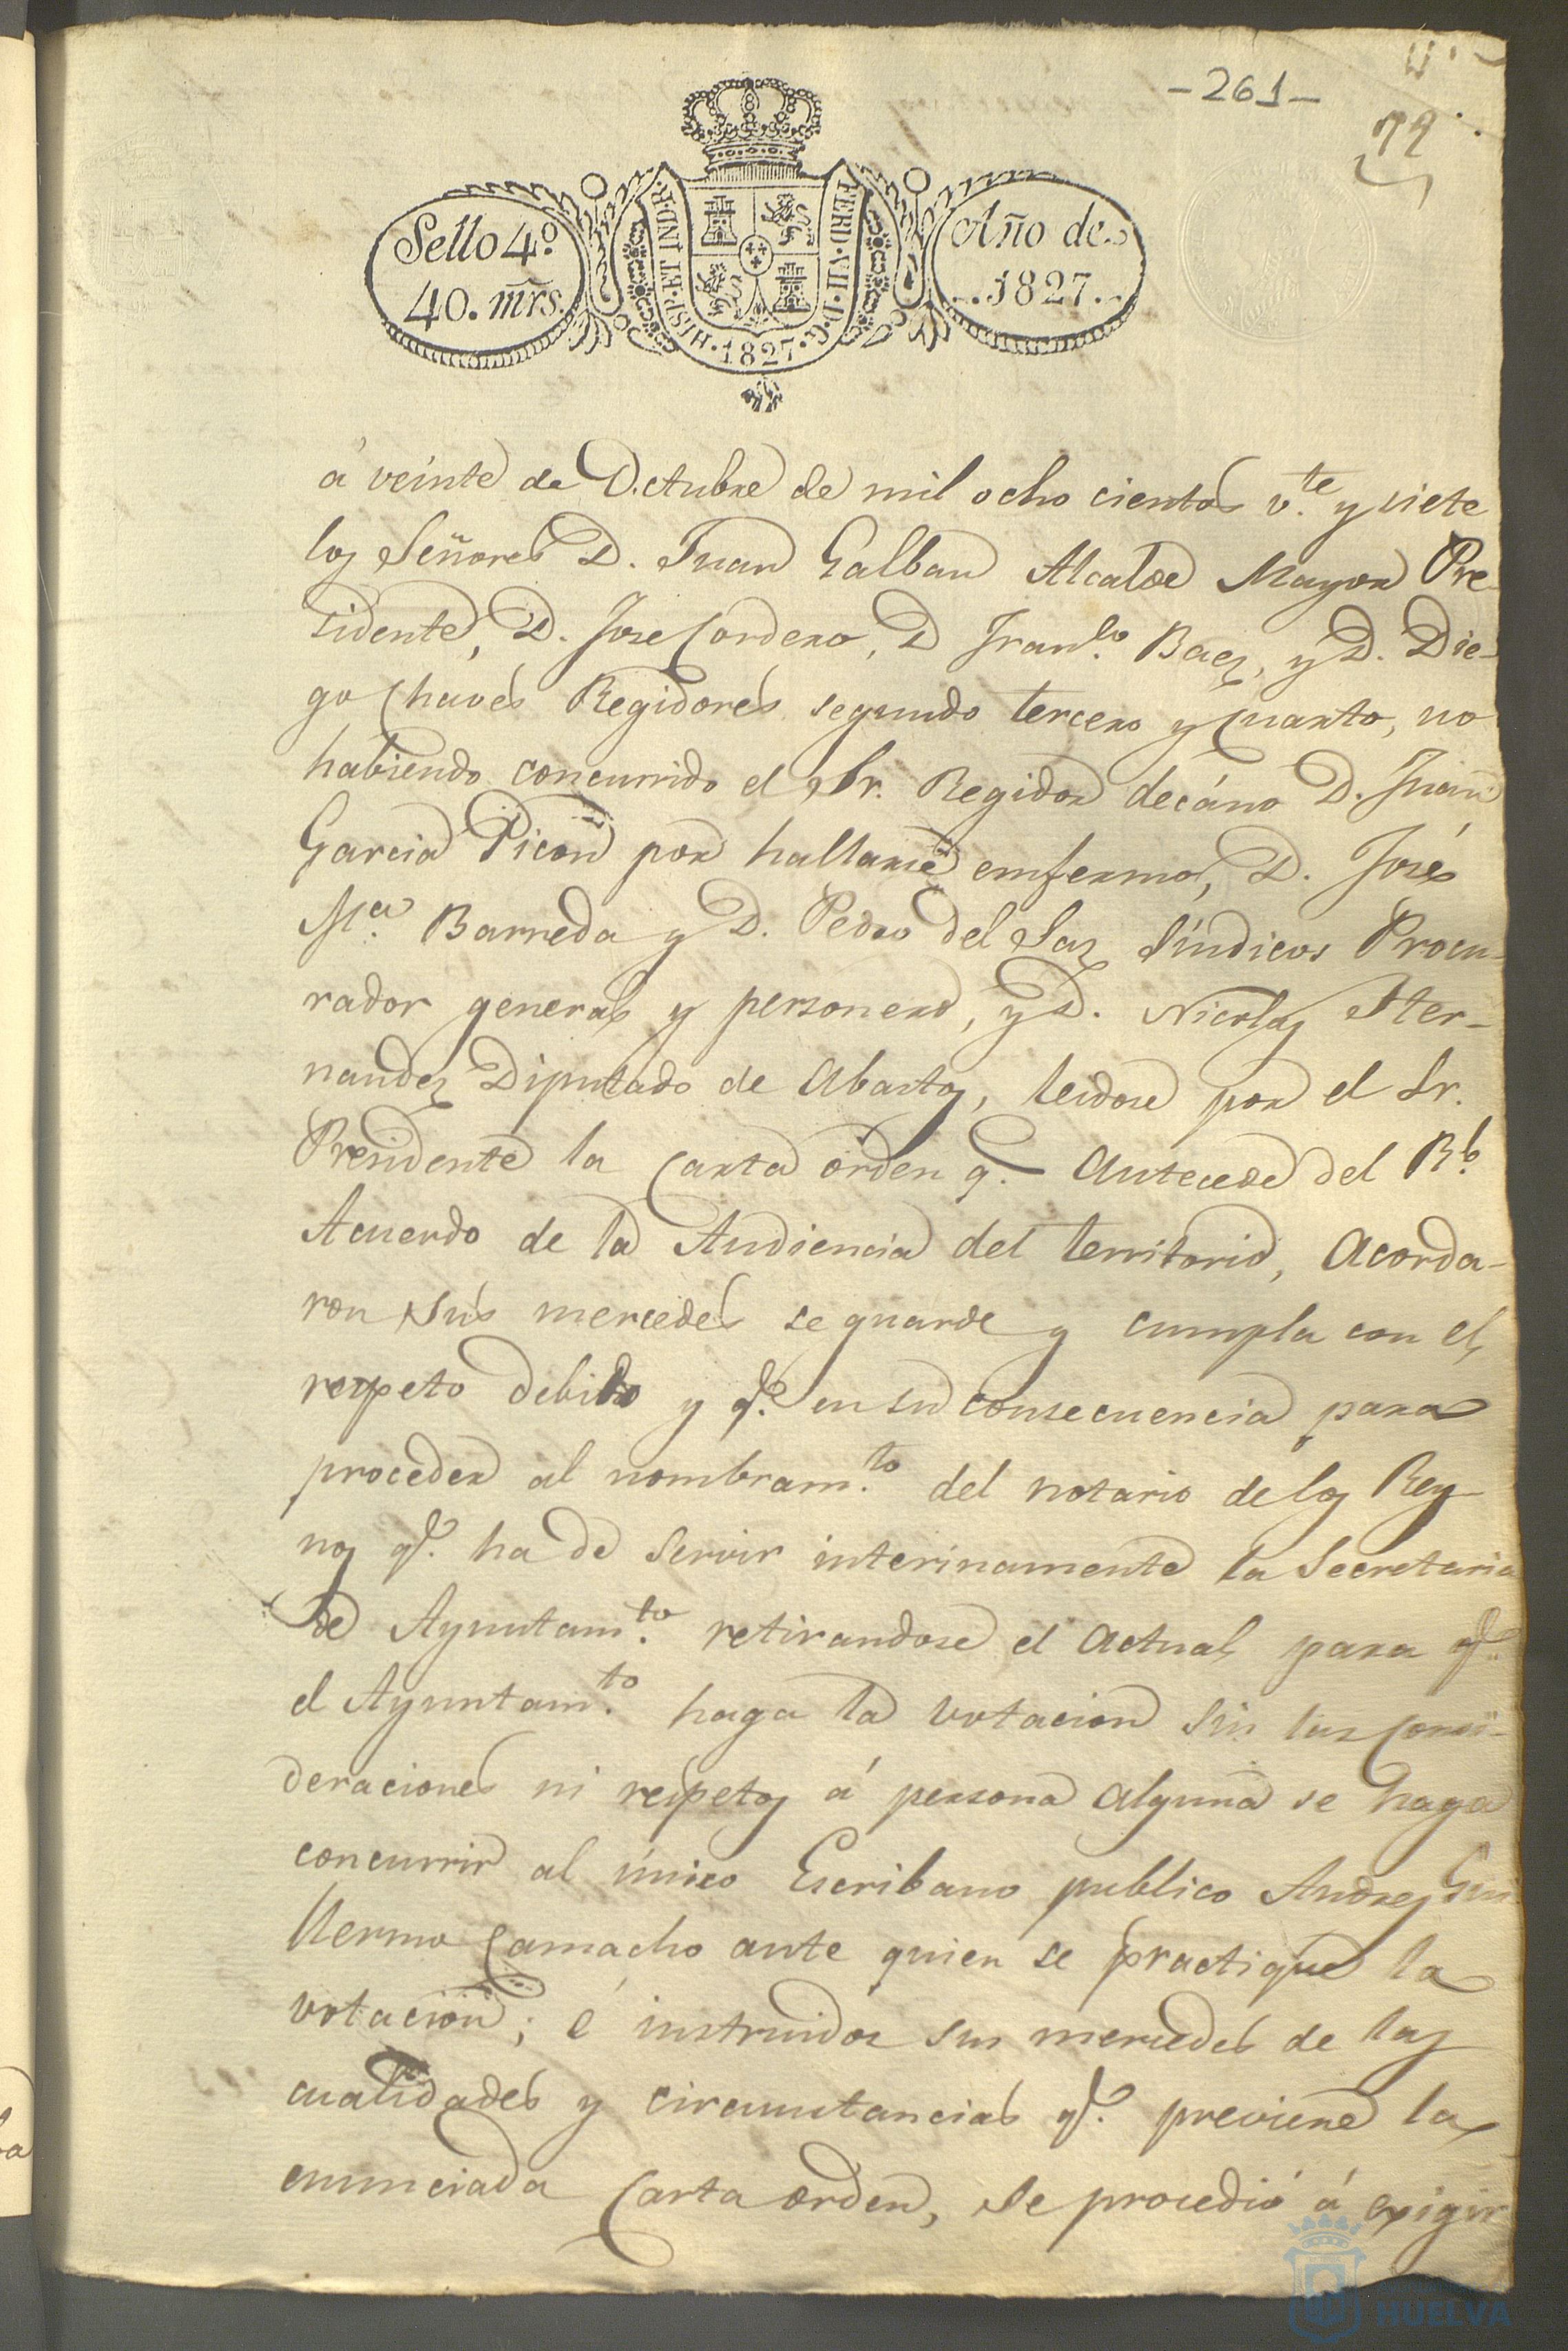 -261-
72
Sello 4º
40. mrs.
HISP. ET IND. R.
FERD. VII. D. G.
·1827·
Año de
1827.
á veinte de Octubre de mil ocho cientos v.te y siete
los Señores D. Juan Galban Alcalde Mayor Pre-
sidente, D. Jose Cordero, D Fran.co Baez, y D. Die-
go Chaves Regidores segundo tercero y cuarto, no
habiendo concurrido el Sr. Regidor decáno D. Juan
Garcia Picon por hallarse emfermo, D. José
M.a Barreda y D. Pedro del Saz Síndicos Procu-
rador general y personero, y D. Nicolas Her-
nandez Diputado de Abastos, leidose por el Sr.
Presidente la Carta orden q. antecede del Rl.
Acuerdo de la Audiencia del territorio, Acorda-
ron sus mercedes se guarde y cumpla con el
respeto debido y q.e en su consecuencia para
proceder al nombram.to del notario de los Rey-
nos q.e ha de servir interinamente la Secretaria
de Ayuntam.to retirandose el actual para q.e
el Ayuntam.to haga la votacion sin las consi-
deraciones ni respetos á persona alguna se haga
concurrir al único Escribano publico Andres Gui
llermo Camacho ante quien se practique la
votacion; é instruidos sus mercedes de las
cualidades y circunstancias q.e previene la
enunciada Carta orden, se procedió á exigir
HUELVA